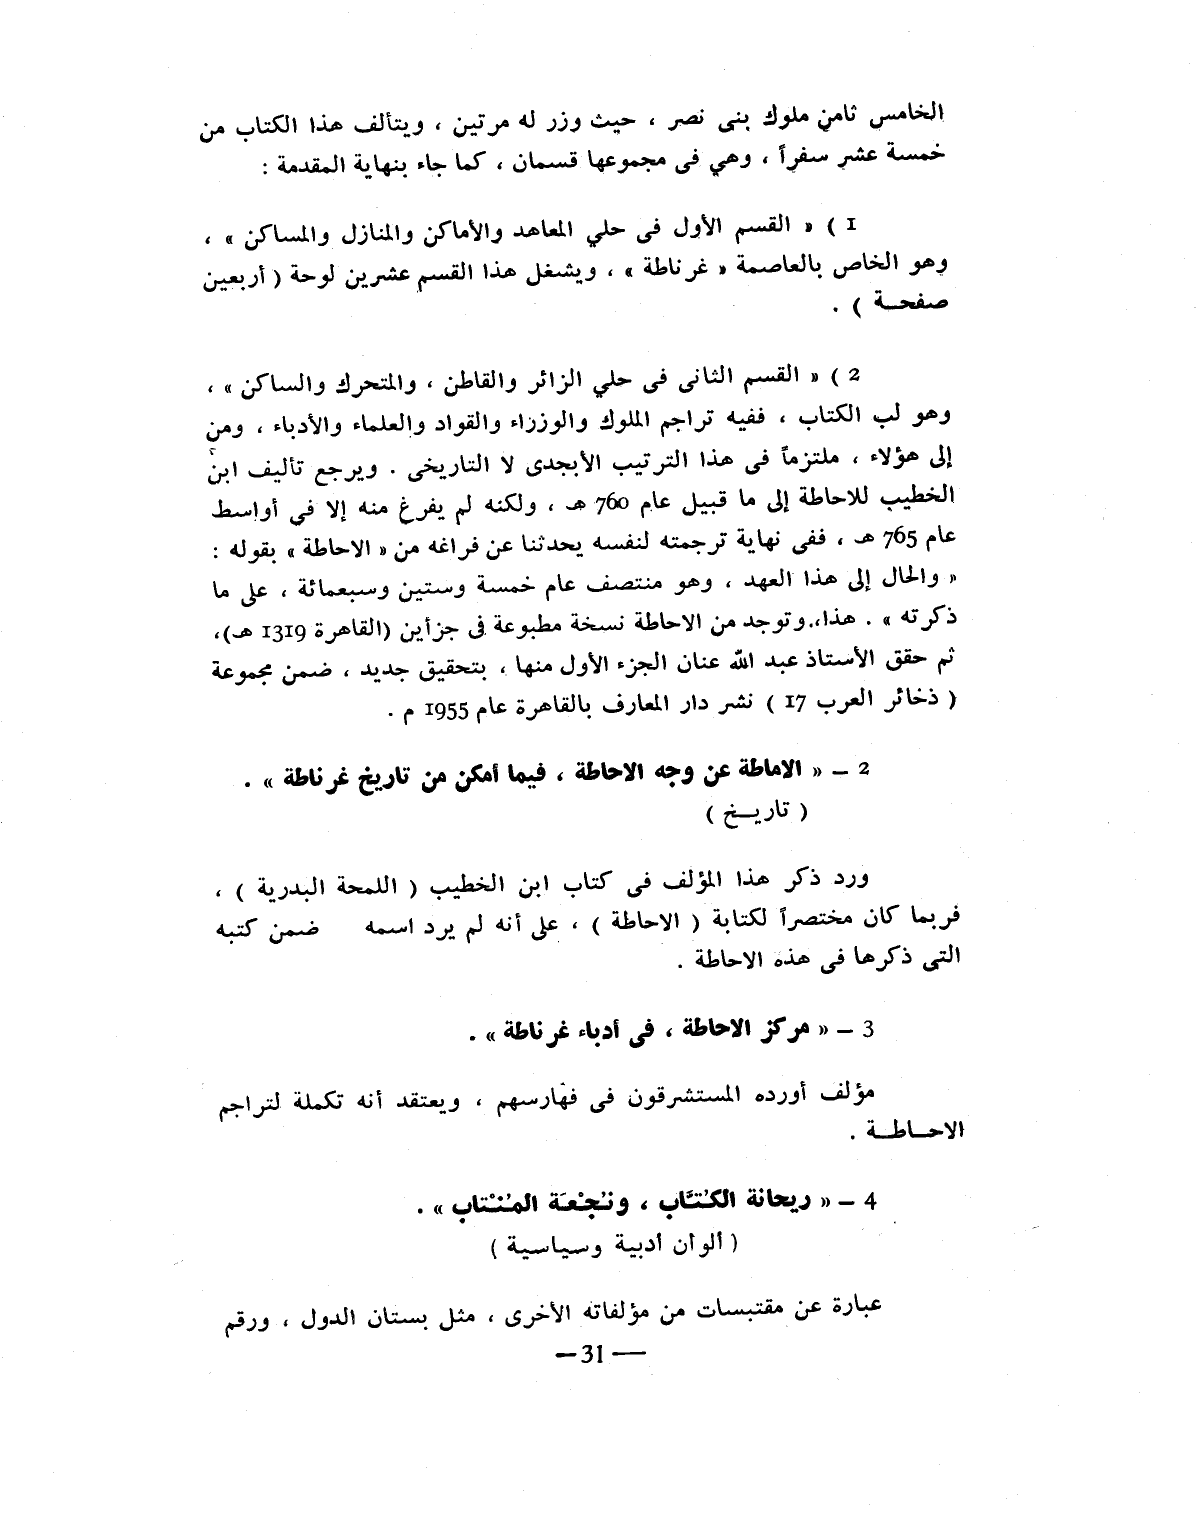 الخامس ثامن ملوك بنى نصر ، حيث وزر له مرتين ، ويتألف هذا الكتاب من
خمسة عشر سفراً ، وهي فى مجموعها قسمان ، كما جاء بنهاية المقدمة :
1 ) « القسم الأول فى حلي المعاهد والأماكن والمنازل والمساكن » ،
وهو الخاص بالعاصمة « غرناطة » ، ويشغل هذا القسم عشرين لوحة ( أربعين
صفحـة ) .
2 ) « القسم الثانى فى حلي الزائر والقاطن ، والمتحرك والساكن » ،
وهو لب الكتاب ، ففيه تراجم الملوك والوزراء والقواد والعلماء والأدباء ، ومن
إلى هؤلاء ، ملتزماً فى هذا الترتيب الأبجدى لا التاريخى . ويرجع تأليف ابن
الخطيب للاحاطة إلى ما قبيل عام 760 هـ ، ولكنه لم يفرغ منه إلا في أواسط
عام 765 هـ ، ففى نهاية ترجمته لنفسه يحدثنا عن فراغه من « الاحاطة » بقوله :
« والحال إلى هذا العهد ، وهو منتصف عام خمسة وستين وسبعمائة ، على ما
ذكرته » . هذا،.وتوجد من الاحاطة نسخة مطبوعة فى جزأين (القاهرة 1319 هـ)،
ثم حقق الأستاذ عبد الله عنان الجزء الأول منها ، بتحقيق جديد ، ضمن مجموعة
( ذخائر العرب 17 ) نشر دار المعارف بالقاهرة عام 1955 م .
2 – « الاماطة عن وجه الاحاطة ، فيما أمكن من تاريخ غرناطة » .
( تاريـخ )
ورد ذكر هذا المؤلف فى كتاب ابن الخطيب ( اللمحة البدرية ) ،
فربما كان مختصراً لكتابة ( الاحاطة ) ، على أنه لم يرد اسمه ضمن كتبه
التى ذكرها فى هذه الاحاطة .
3 – « مركز الاحاطة ، فى أدباء غرناطة » .
مؤلف أورده المستشرقون فى فهارسهم ، ويعتقد أنه تكملة لتراجم
الاحـاطـة .
4 – « ريحانة الكُتَّاب ، ونُجْعَة المُنْتاب » .
( ألوان أدبية وسياسية )
عبارة عن مقتبسات من مؤلفاته الأخرى ، مثل بستان الدول ، ورقم
— 31 —